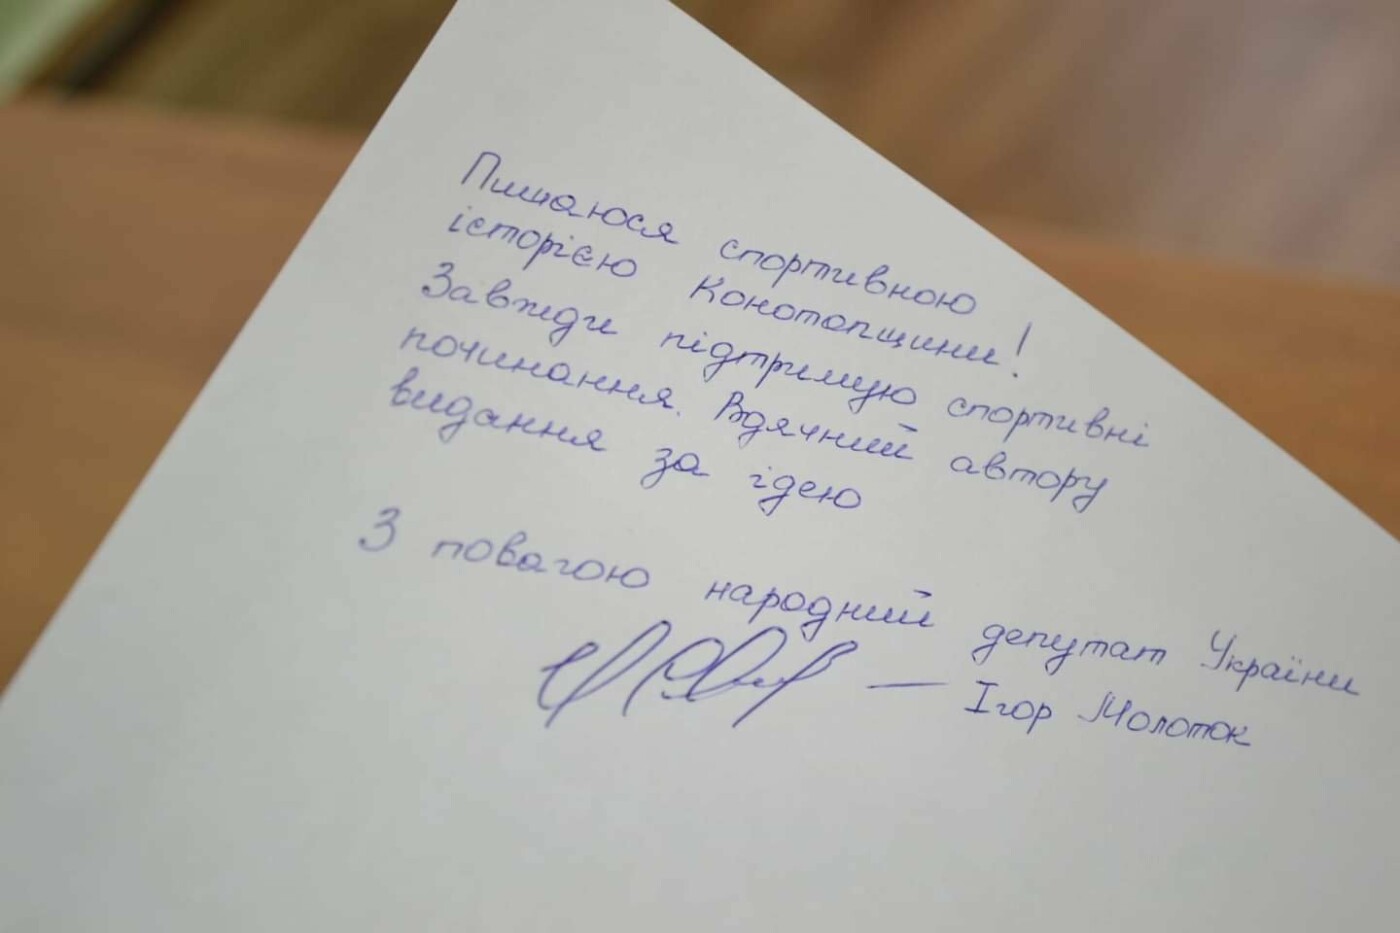 Пишаюся спортивною
історією Конотопщини!
Завжди підтримую спортивні
починання. Вдячний автору
видання за ідею
З повагою народний депутат України
— Ігор Молоток